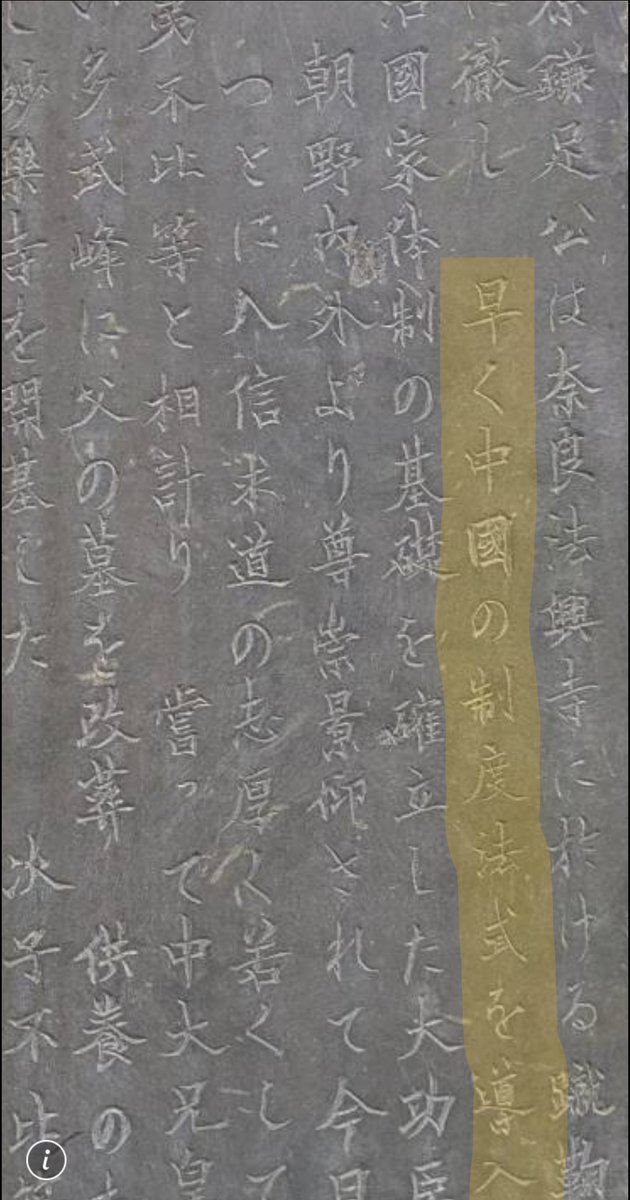 鎌足公は奈良法興寺に於ける蹴
徹し 早く中國の制度法式を導入
治國家体制の基礎を確立した大功臣
朝野内外より尊崇景仰されて今日
つとに入信求道の志厚く若くして
弟不比等と相計り 嘗って中大兄皇
多武峰に父の墓を改葬 供養の
し妙樂寺を開基した 次子不比